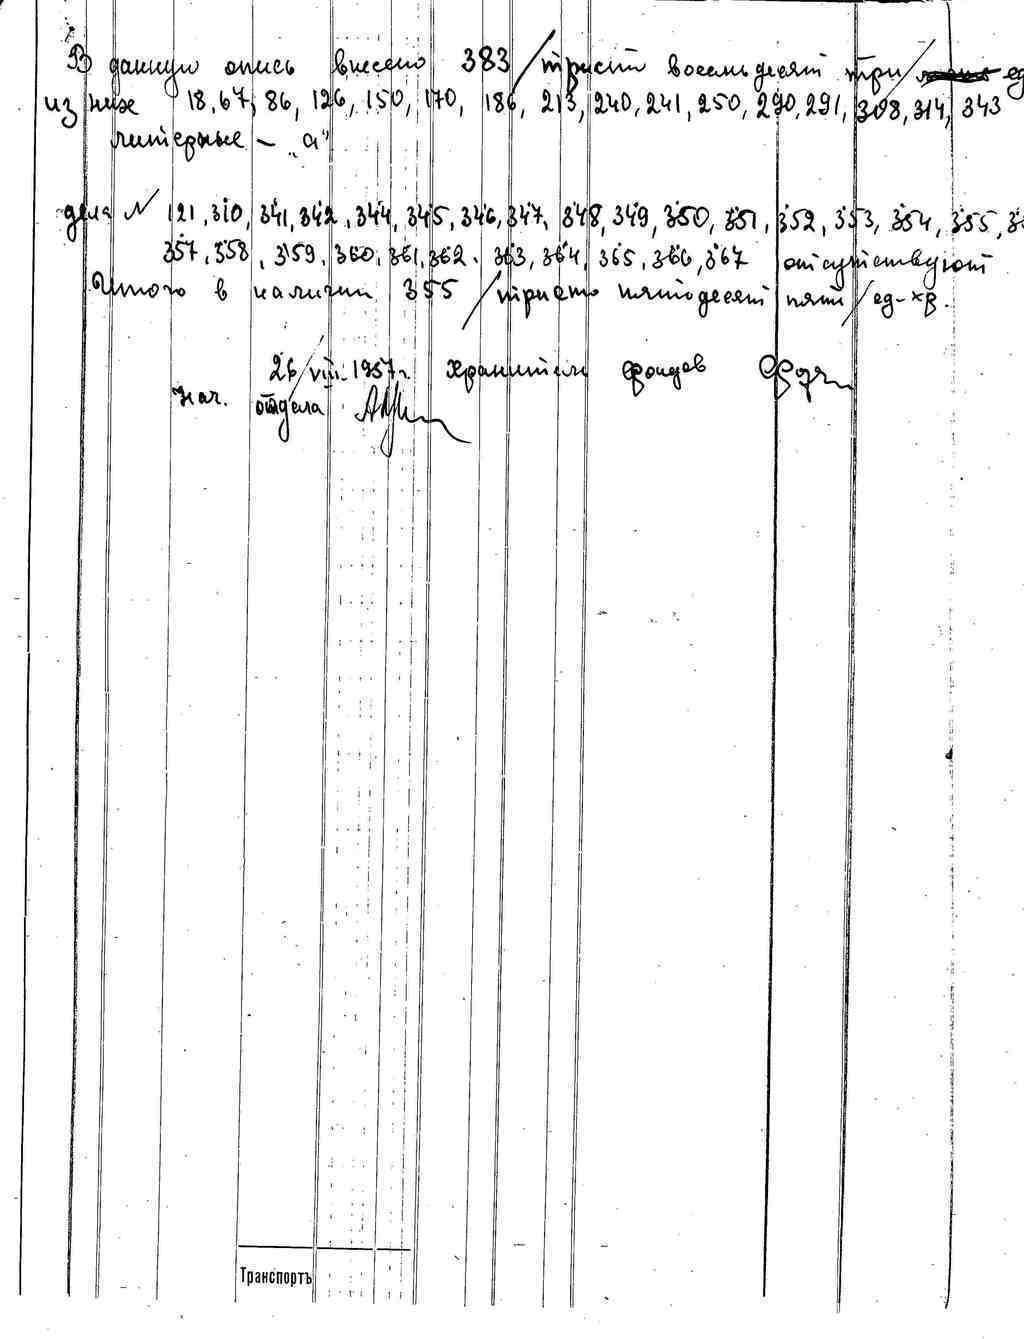 В данную опись внесено 383 /триста восемьдесят три/ ед
из них 18, 67, 86, 126, 150, 170, 186, 213, 240, 241, 250, 290, 291, 308, 314, 343
литерные – „а"
дела N 121, 310, 341, 342, 344, 345, 346, 347, 348, 349, 350, 351, 352, 353, 354, 355,
357, 358, 359, 360, 361, 362, 363, 364, 365, 366, 367 отсутствуют
Итого в наличии 355 /триста пятьдесят пять/ ед-хр.
26/VIII-1957г. Хранитель фондов
Нач. отдела
Транспортъ